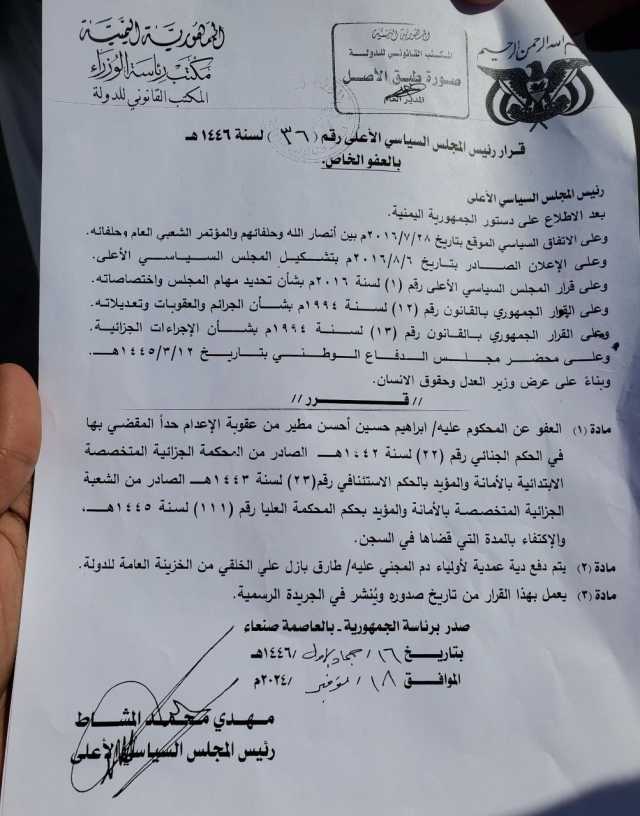 الجمهورية اليمنية
مكتب رئاسة الوزراء
المكتب القانوني للدولة
الجمهورية اليمنية
المكتب القانوني للدولة
صورة طبق الأصل
المدير العام
بسم الله الرحمن الرحيم
قرار رئيس المجلس السياسي الأعلى رقم (٣٦) لسنة ١٤٤٦هـ
بالعفو الخاص.
رئيس المجلس السياسي الأعلى
بعد الاطلاع على دستور الجمهورية اليمنية.
وعلى الاتفاق السياسي الموقع بتاريخ ٢٠١٦/٧/٢٨م بين أنصار الله وحلفائهم والمؤتمر الشعبي العام وحلفائه.
وعلى الإعلان الصادر بتاريخ ٢٠١٦/٨/٦م بتشكيل المجلس السياسي الأعلى.
وعلى قرار المجلس السياسي الأعلى رقم (١) لسنة ٢٠١٦م بشأن تحديد مهام المجلس واختصاصاته.
وعلى القرار الجمهوري بالقانون رقم (١٢) لسنة ١٩٩٤م بشأن الجرائم والعقوبات وتعديلاته.
وعلى القرار الجمهوري بالقانون رقم (١٣) لسنة ١٩٩٤م بشأن الإجراءات الجزائية.
وعلى محضر مجلس الدفاع الوطني بتاريخ ١٤٤٥/٣/١٢هـ.
وبناءً على عرض وزير العدل وحقوق الانسان.
// قـــرر //
مادة (١) العفو عن المحكوم عليه/ ابراهيم حسين أحسن مطير من عقوبة الإعدام حداً المقضي بها
في الحكم الجنائي رقم (٢٢) لسنة ١٤٤٢هـ الصادر من المحكمة الجزائية المتخصصة
الابتدائية بالأمانة والمؤيد بالحكم الاستئنافي رقم(٢٣) لسنة ١٤٤٣هـ الصادر من الشعبة
الجزائية المتخصصة بالأمانة والمؤيد بحكم المحكمة العليا رقم (١١١) لسنة ١٤٤٥هـ،
والإكتفاء بالمدة التي قضاها في السجن.
مادة (٢) يتم دفع دية عمدية لأولياء دم المجني عليه/ طارق بازل علي الخلقي من الخزينة العامة للدولة.
مادة (٣) يعمل بهذا القرار من تاريخ صدوره ويُنشر في الجريدة الرسمية.
صدر برئاسة الجمهورية - بالعاصمة صنعاء
بتاريخ ١٦/جماد الاول/١٤٤٦هـ
الموافق ١٨/نوفمبر/٢٠٢٤م
مهدي محمد المشاط
رئيس المجلس السياسي الأعلى